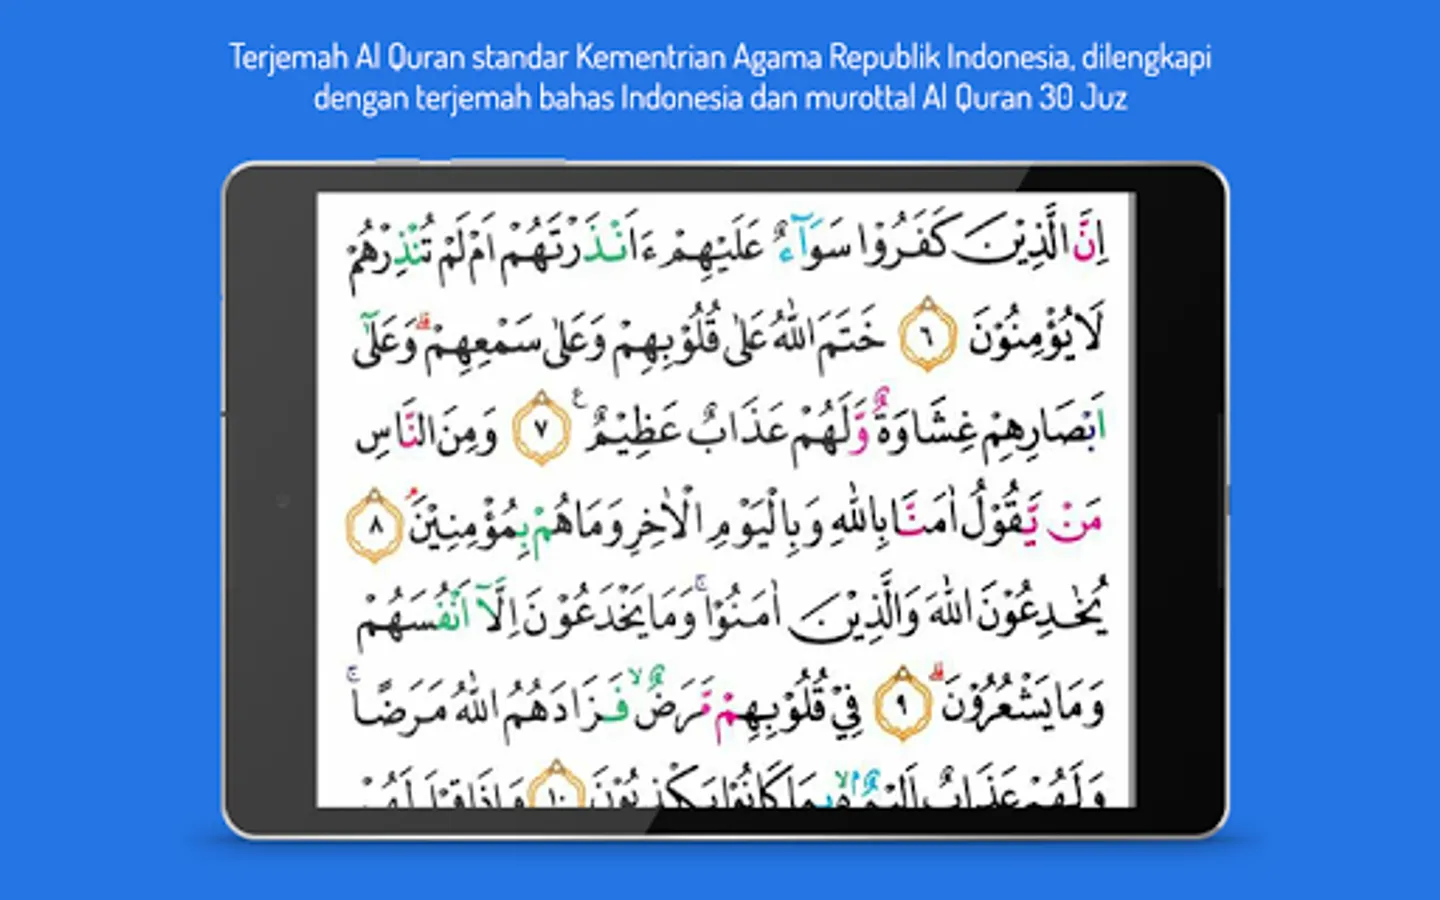 Terjemah Al Quran standar Kementrian Agama Republik Indonesia, dilengkapi
dengan terjemah bahas Indonesia dan murottal Al Quran 30 Juz
اِنَّ الَّذِيْنَ كَفَرُوْا سَوَآءٌ عَلَيْهِمْ ءَاَنْذَرْتَهُمْ اَمْ لَمْ تُنْذِرْهُمْ
لَا يُؤْمِنُوْنَ ٦ خَتَمَ اللّٰهُ عَلٰى قُلُوْبِهِمْ وَعَلٰى سَمْعِهِمْ ۗ وَعَلٰٓى
اَبْصَارِهِمْ غِشَاوَةٌ ۖ وَّلَهُمْ عَذَابٌ عَظِيْمٌ ࣖ ٧ وَمِنَ النَّاسِ
مَنْ يَّقُوْلُ اٰمَنَّا بِاللّٰهِ وَبِالْيَوْمِ الْاٰخِرِ وَمَا هُمْ بِمُؤْمِنِيْنَ ۘ ٨
يُخٰدِعُوْنَ اللّٰهَ وَالَّذِيْنَ اٰمَنُوْا ۚ وَمَا يَخْدَعُوْنَ اِلَّآ اَنْفُسَهُمْ
وَمَا يَشْعُرُوْنَ ۗ ٩ فِيْ قُلُوْبِهِمْ مَّرَضٌ ۙ فَزَادَهُمُ اللّٰهُ مَرَضًا ۚ
وَلَهُمْ عَذَابٌ اَلِيْمٌ ۢ ەۙ بِمَا كَانُوْا يَكْذِبُوْنَ ١٠ وَاِذَا قِيْلَ لَهُمْ